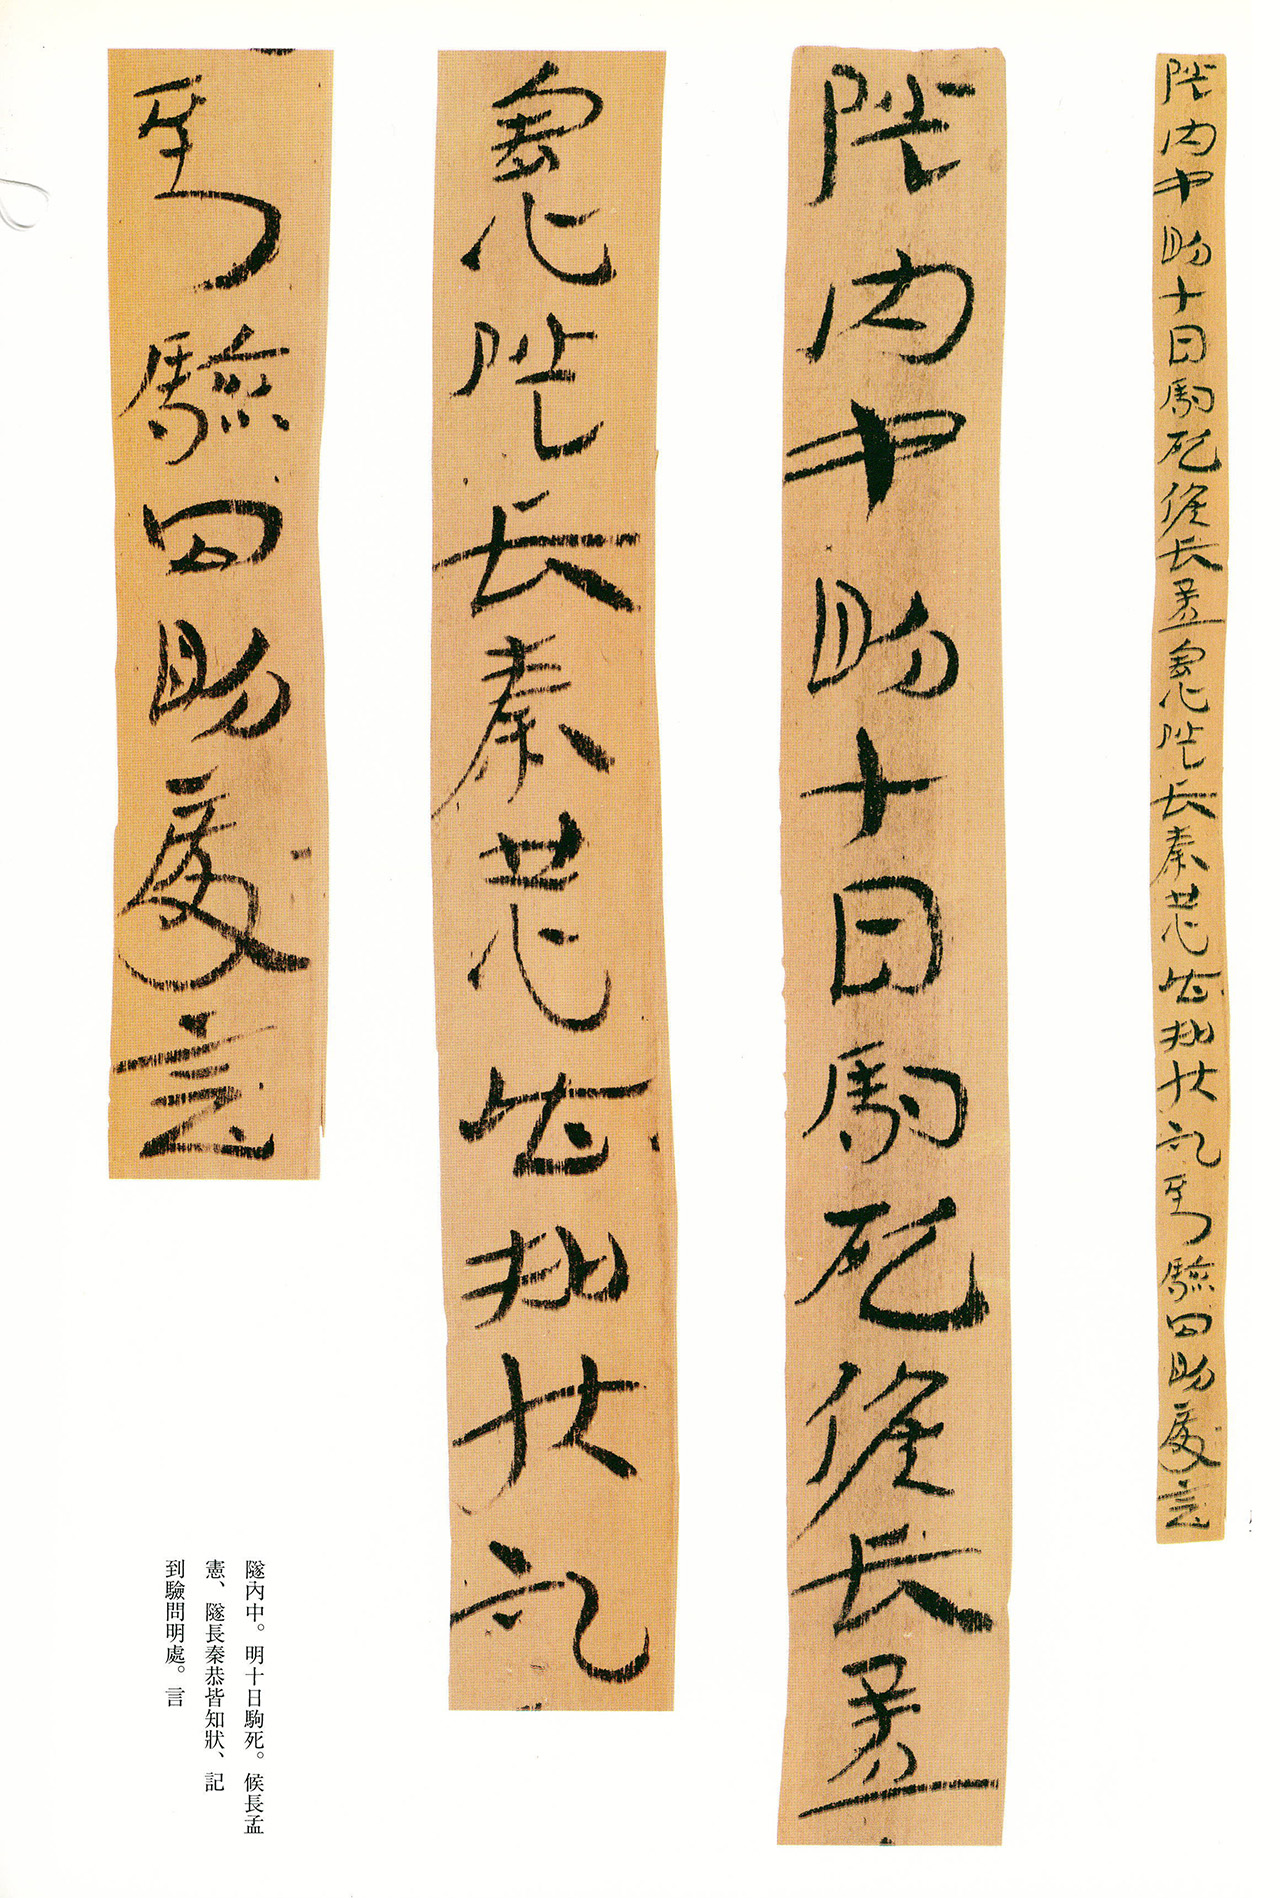 隧內中明十日駒死候長孟憲隧長秦恭皆知狀記到驗問明處言
隧內中明十日駒死候長孟
憲隧長秦恭皆知狀記
到驗問明處言
隧內中。明十日駒死。候長孟
憲、隧長秦恭皆知狀、記
到驗問明處。言